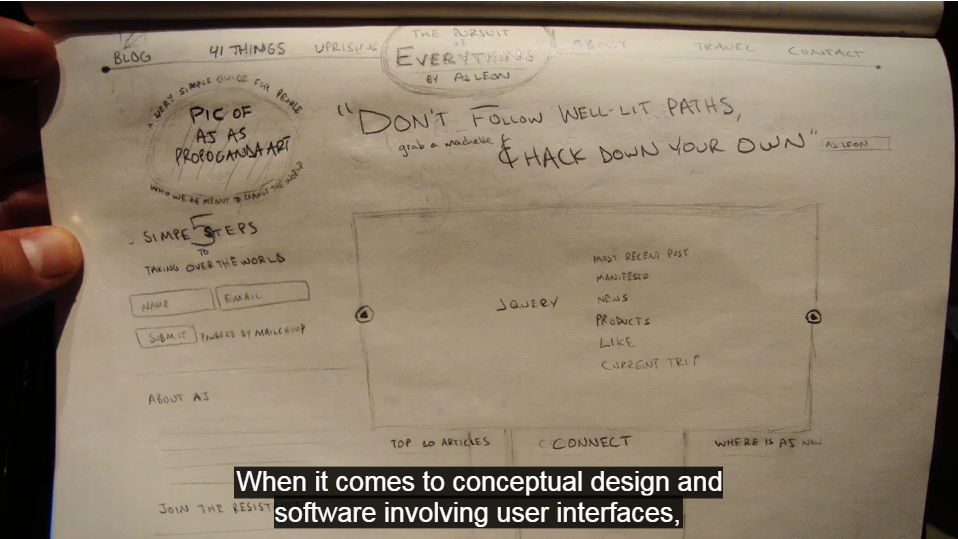 BLOG
41 THINGS
UPRISING
THE PURSUIT
OF
EVERYTHING
BY AJ LEON
ABOUT
TRAVEL
CONTACT
A VERY SIMPLE GUIDE FOR PEOPLE
PIC OF
AJ AS
PROPOGANDA ART
WHO WERE MEANT TO CHANGE THE WORLD
"DON'T FOLLOW WELL-LIT PATHS,
grab a machete &
& HACK DOWN YOUR OWN"
AJ LEON
5
SIMPE STEPS
TO
TAKING OVER THE WORLD
NAME
EMAIL
SUBMIT
POWERED BY MAILCHIMP
ABOUT AJ
JOIN THE RESIST
JQUERY
MOST RECENT POST
MANIFESTO
NEWS
PRODUCTS
LIKE
CURRENT TRIP
TOP 10 ARTICLES
CONNECT
WHERE IS AJ NOW
When it comes to conceptual design and
software involving user interfaces,